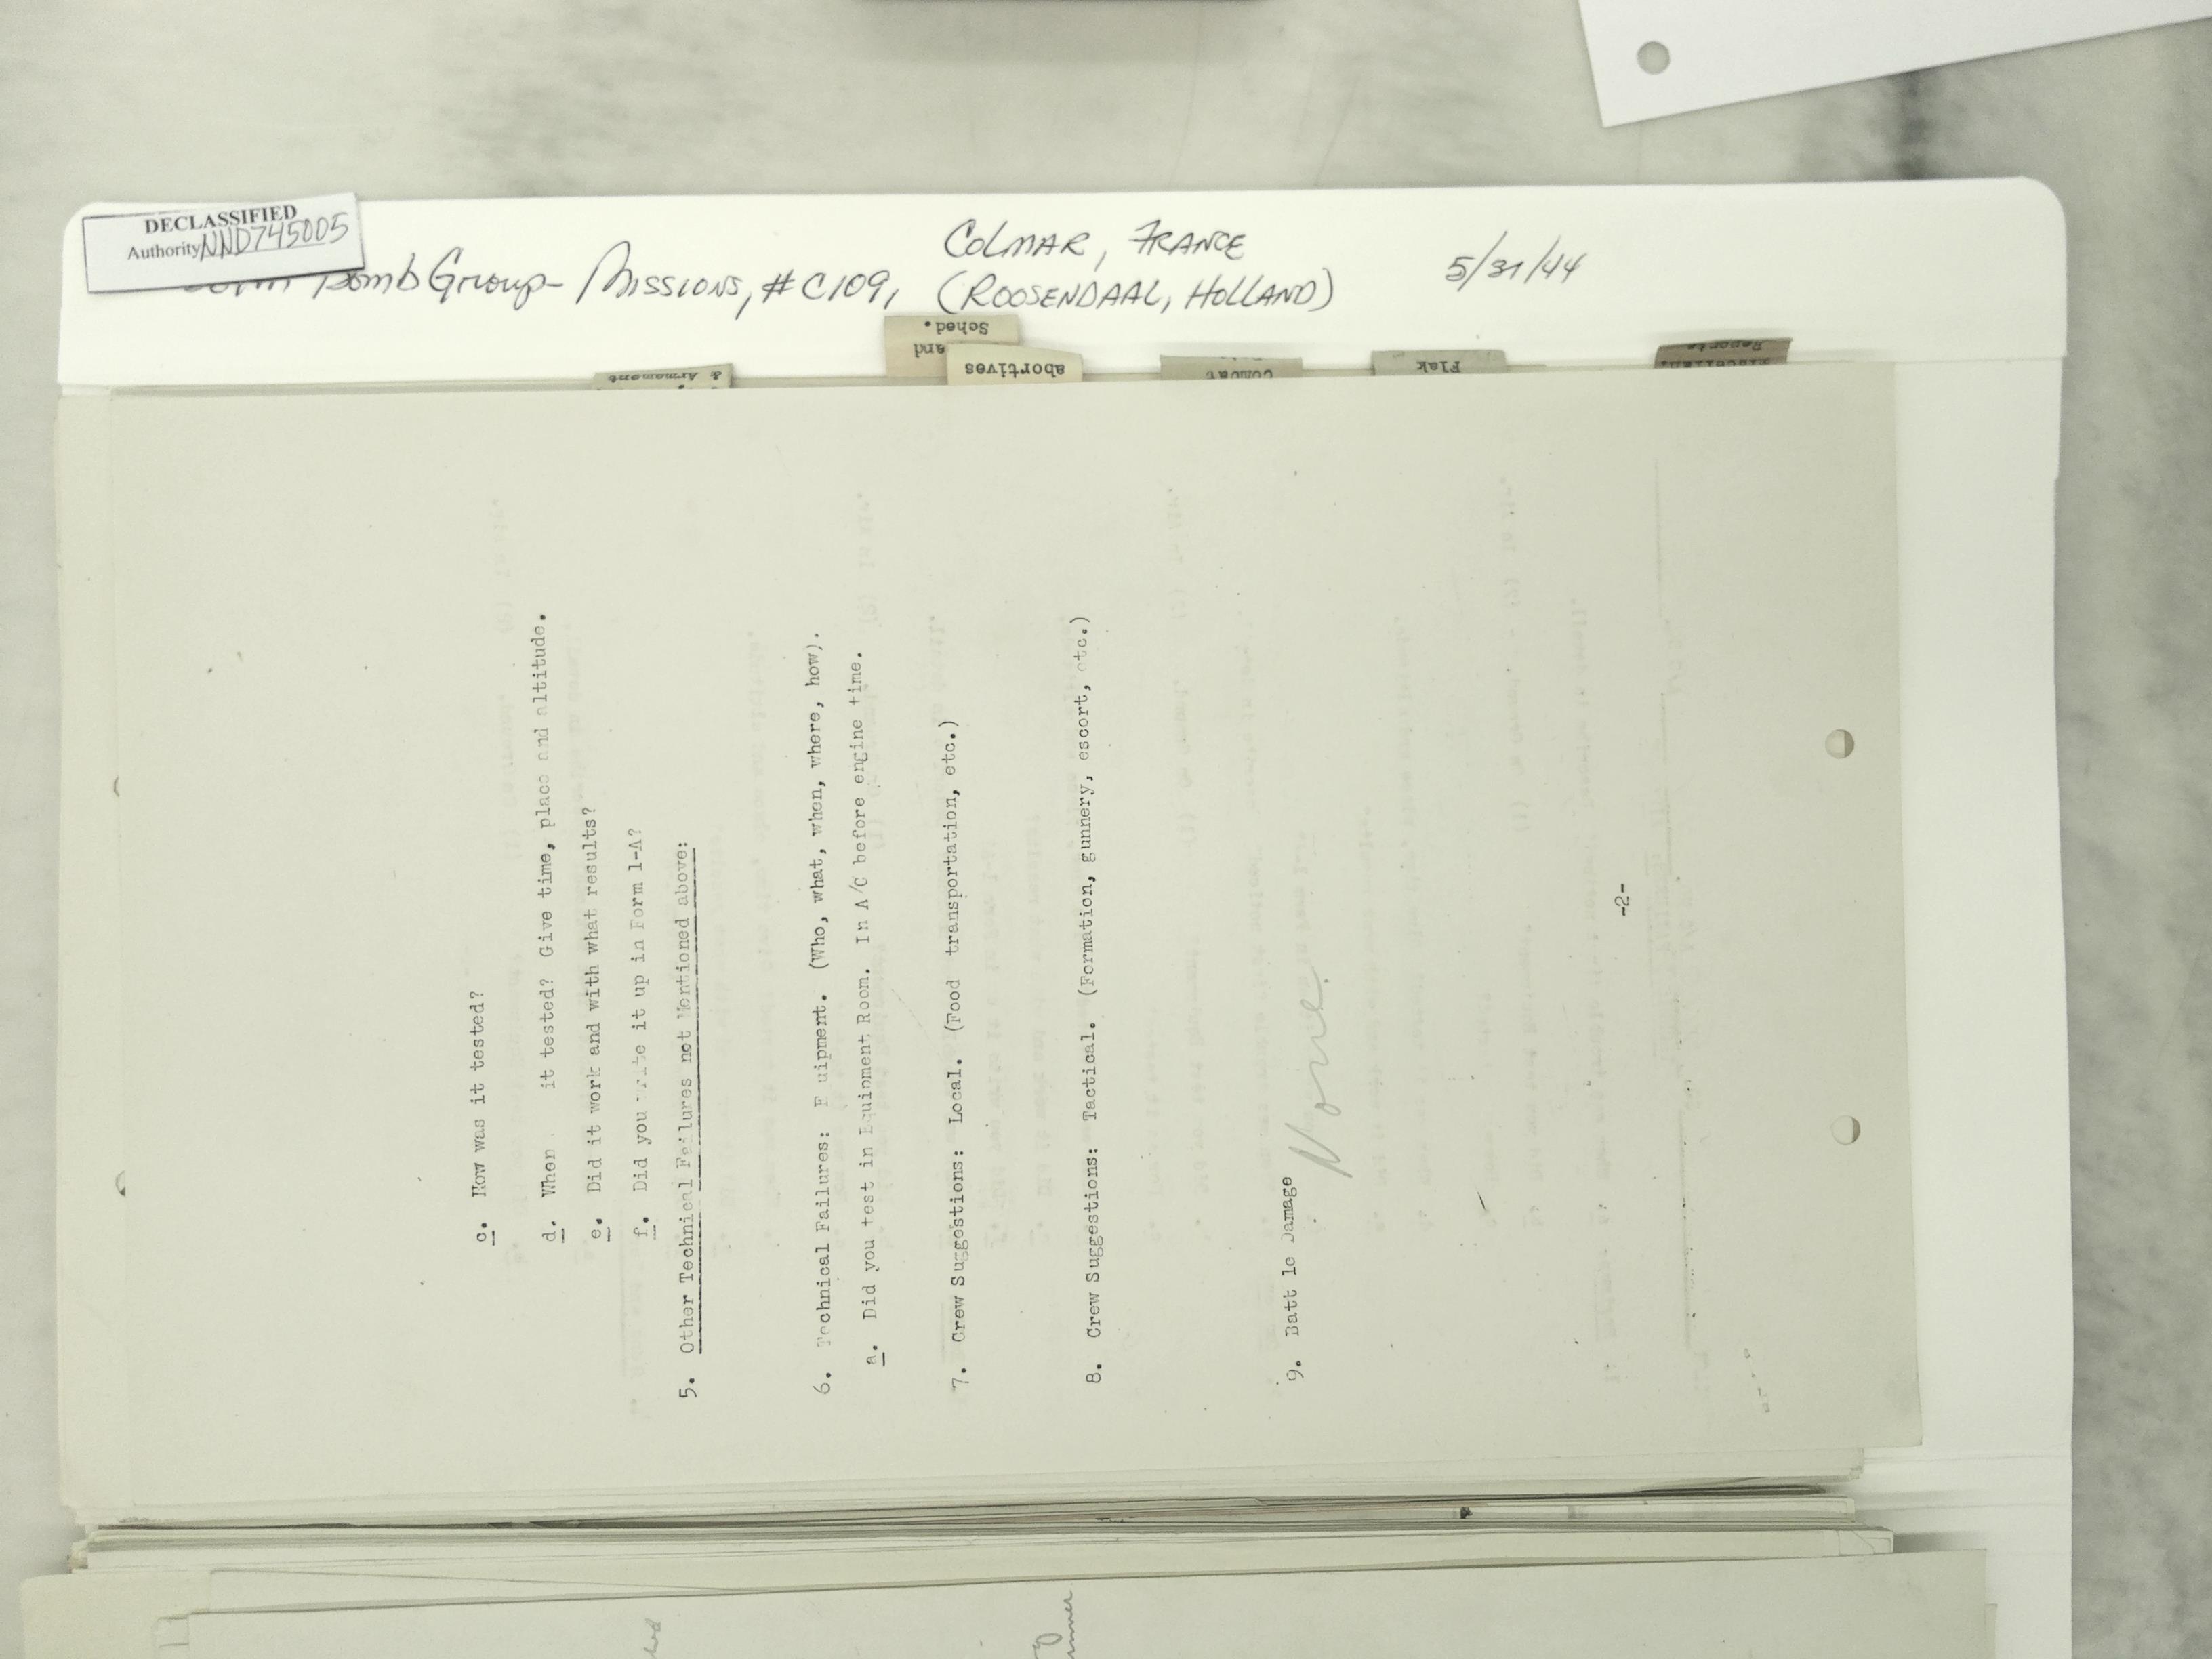 DECLASSIFIED
Authority NND745005
Bomb Group - Missions, #C109,
COLMAR, FRANCE
(ROOSENDAAL, HOLLAND)
5/31/44
Sched.
and
abortives
& Armament
Combat
Flak
Reports
c. How was it tested?
d. When it tested? Give time, place and altitude.
e. Did it work and with what results?
f. Did you write it up in Form 1-A?
5. Other Technical Failures not Mentioned above:
6. Technical Failures: E uipment. (Who, what, when, where, how).
a. Did you test in Equipment Room. In A/C before engine time.
7. Crew Suggestions: Local. (Food transportation, etc.)
8. Crew Suggestions: Tactical. (Formation, gunnery, escort, etc.)
9. Batt le Damage
None.
-2-